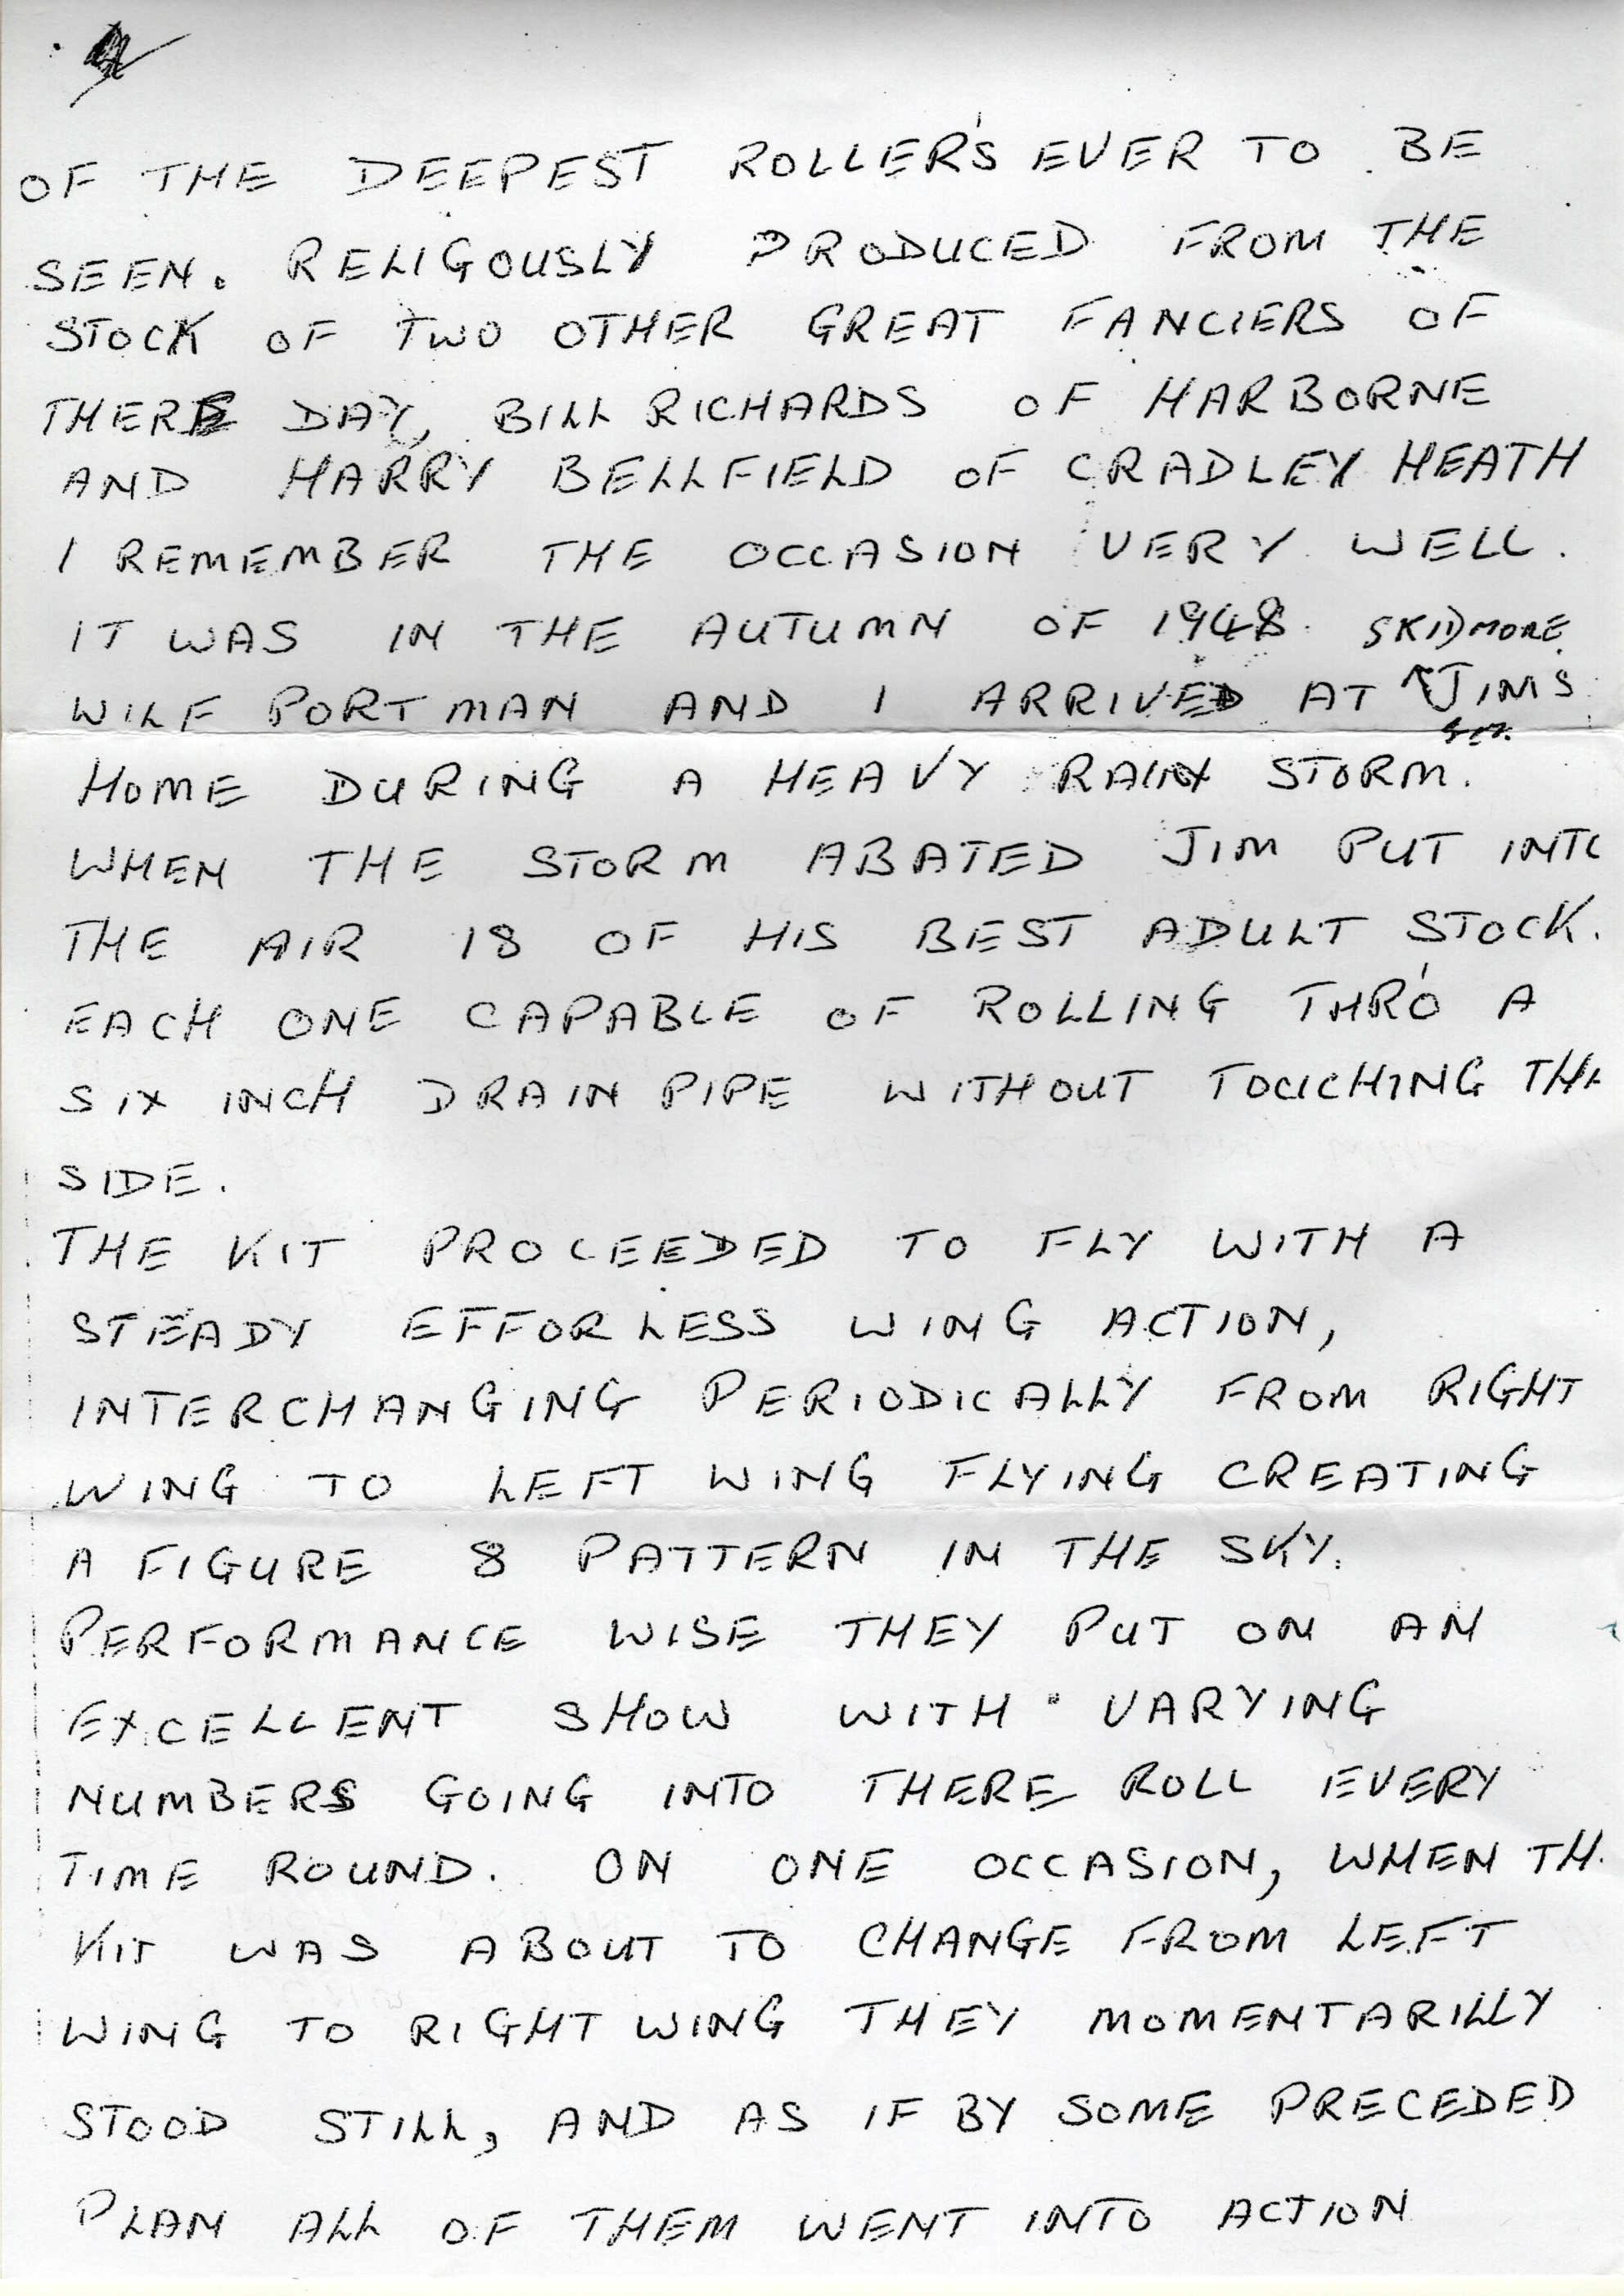 OF THE DEEPEST ROLLER'S EVER TO BE
SEEN. RELIGOUSLY PRODUCED FROM THE
STOCK OF TWO OTHER GREAT FANCIERS OF
THERE DAY, BILL RICHARDS OF HARBORNE
AND HARRY BELLFIELD OF CRADLEY HEATH
I REMEMBER THE OCCASION VERY WELL.
IT WAS IN THE AUTUMN OF 1948. SKIDMORE
WILF PORTMAN AND I ARRIVED AT JIMS
HOME DURING A HEAVY RAIN STORM.
WHEN THE STORM ABATED JIM PUT INTO
THE AIR 18 OF HIS BEST ADULT STOCK.
EACH ONE CAPABLE OF ROLLING THRO' A
SIX INCH DRAIN PIPE WITHOUT TOUCHING TH
SIDE.
THE KIT PROCEEDED TO FLY WITH A
STEADY EFFORLESS WING ACTION,
INTERCHANGING PERIODICALLY FROM RIGHT
WING TO LEFT WING FLYING CREATING
A FIGURE 8 PATTERN IN THE SKY.
PERFORMANCE WISE THEY PUT ON AN
EXCELLENT SHOW WITH VARYING
NUMBERS GOING INTO THERE ROLL EVERY
TIME ROUND. ON ONE OCCASION, WHEN TH
KIT WAS ABOUT TO CHANGE FROM LEFT
WING TO RIGHT WING THEY MOMENTARILLY
STOOD STILL, AND AS IF BY SOME PRECEDED
PLAN ALL OF THEM WENT INTO ACTION